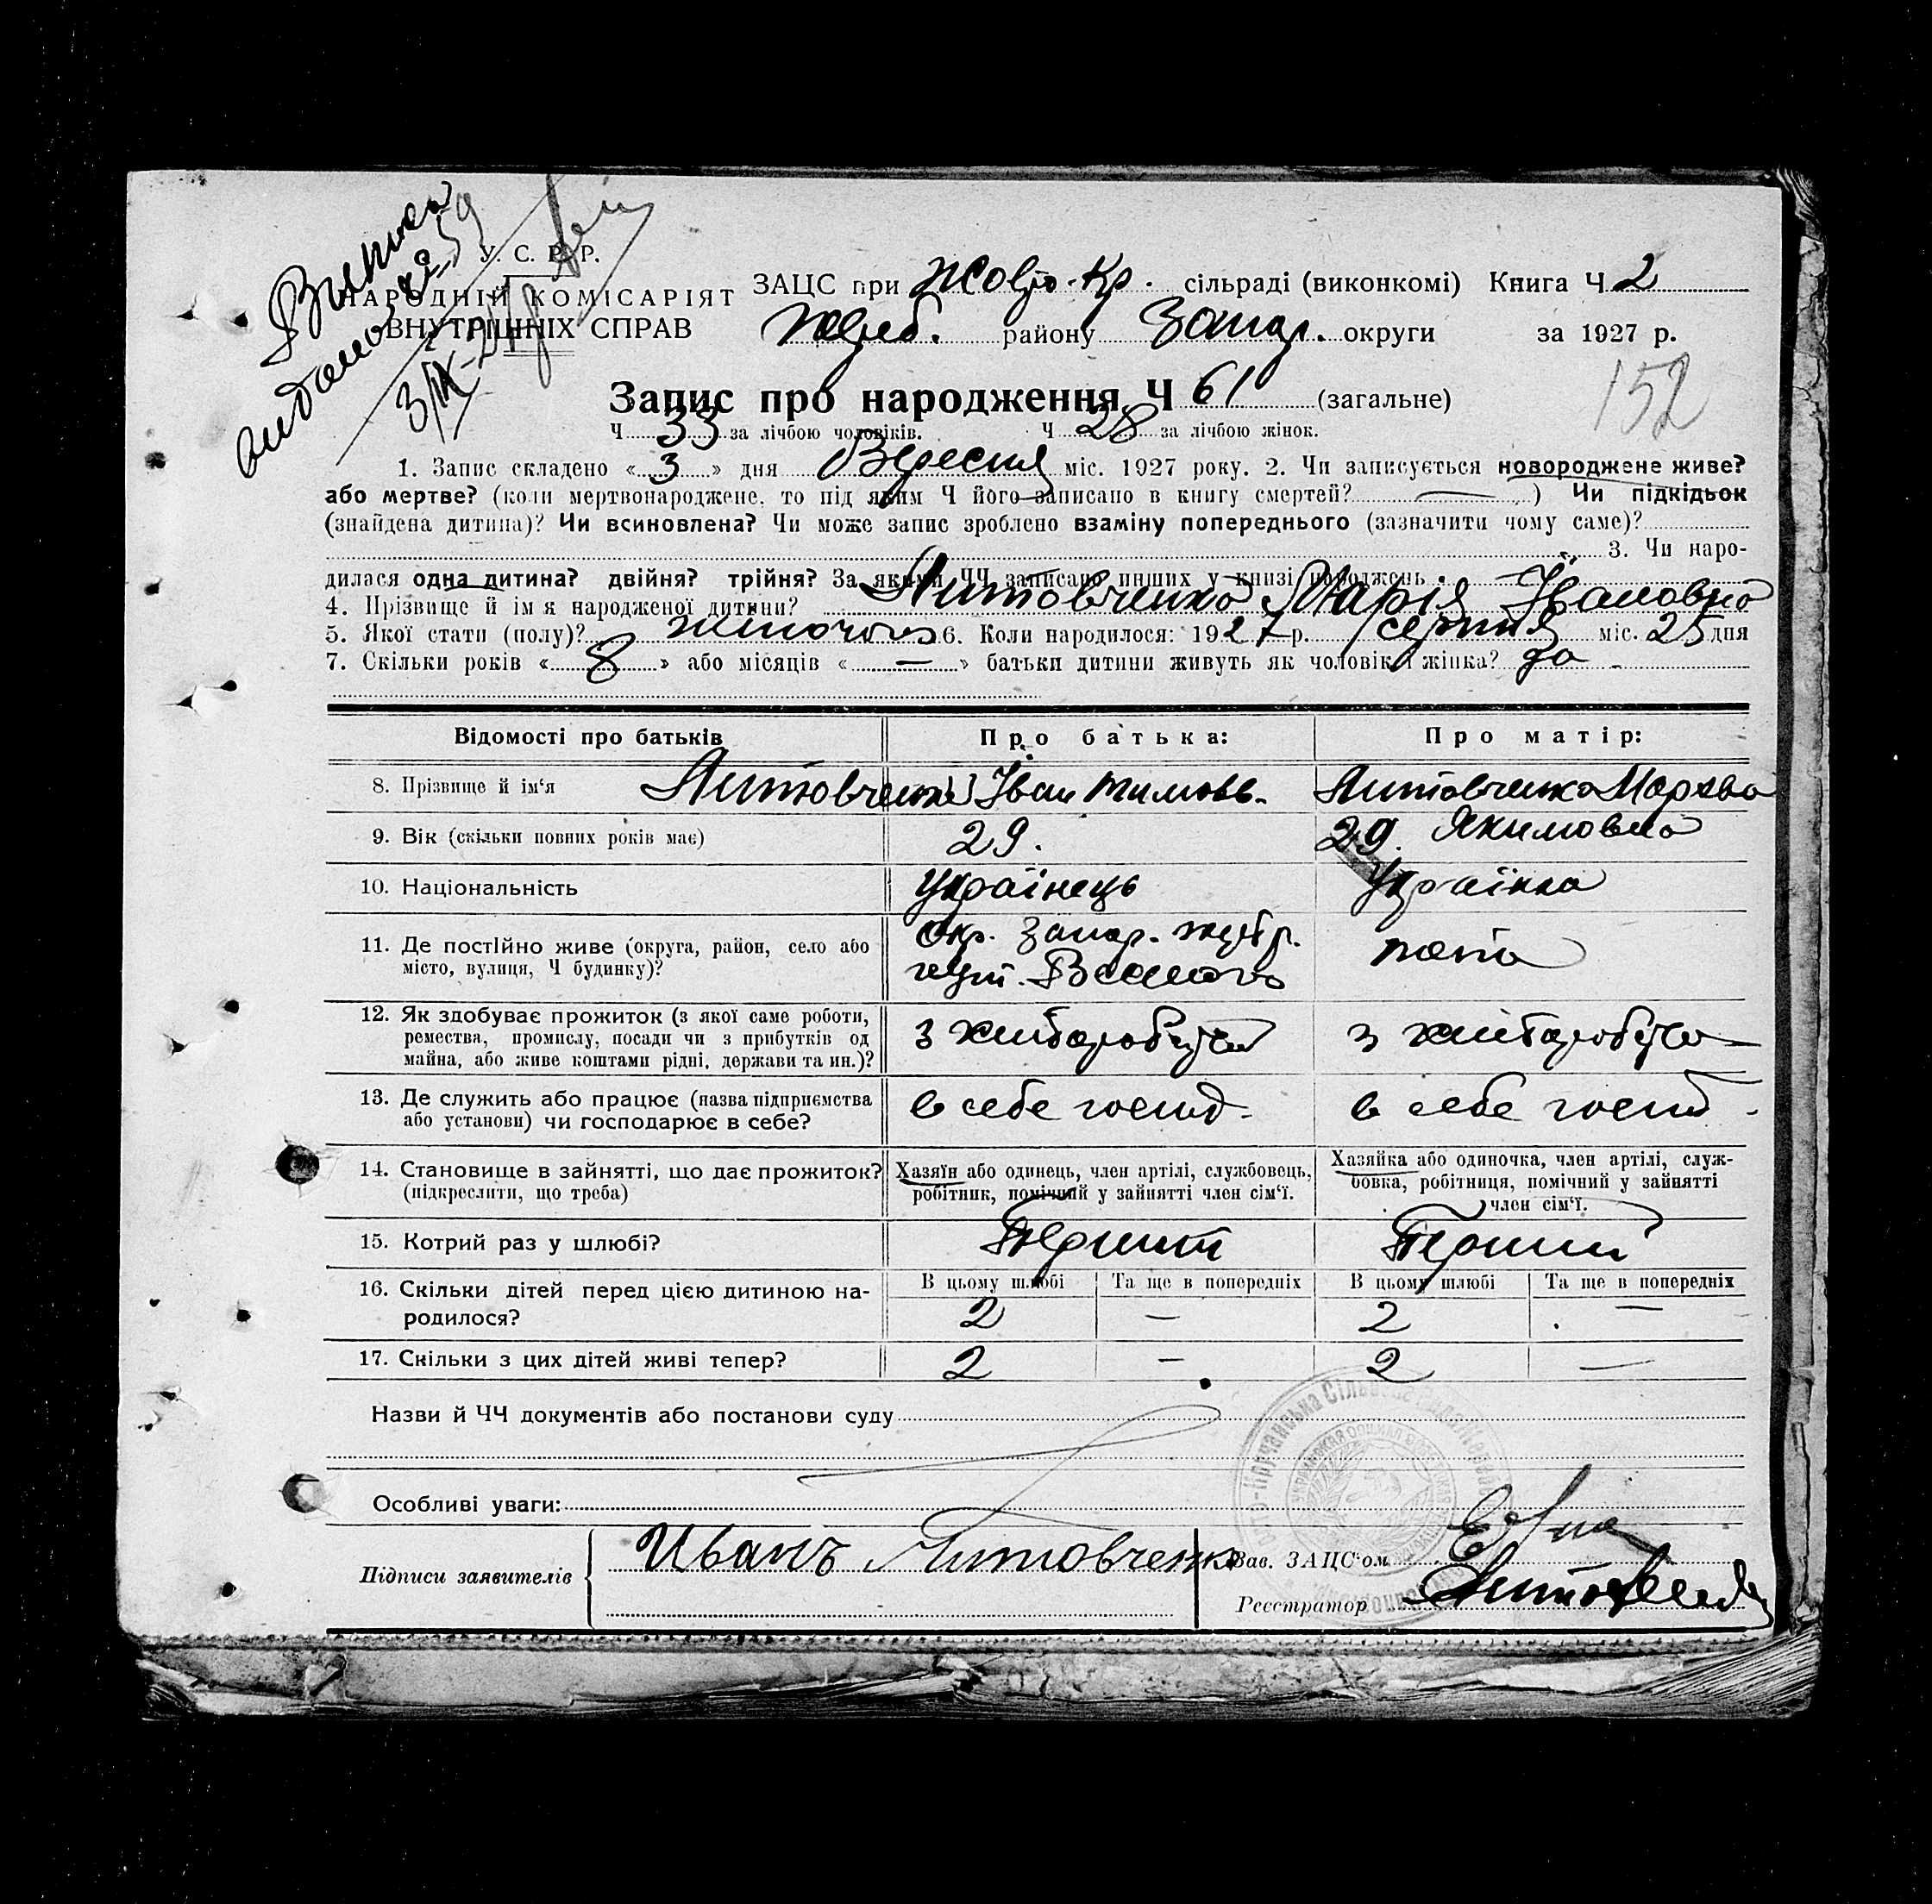 Выписка
видано
У. С. Р. Р.
НАРОДНІЙ КОМІСАРІЯТ
ВНУТРІШНІХ СПРАВ
ЗАЦС при Жовто-Кр. сільраді (виконкомі) Книга Ч 2
Жереб. району Запор. округи за 1927 р.
152
Запис про народження Ч 61 (загальне)
Ч 33 за лічбою чоловіків. Ч 28 за лічбою жінок.
1. Запис складено « 3 » дня Вересня міс. 1927 року. 2. Чи записується новороджене живе?
або мертве? (коли мертвонароджене, то під яким Ч його записано в книгу смертей? — ) Чи підкідьок
(знайдена дитина)? Чи всиновлена? Чи може запис зроблено взаміну попереднього (зазначити чому саме)?
3. Чи наро-
дилася одна дитина? двійня? трійня? За якими ЧЧ записано инших у книзі народжень
4. Прізвище й ім'я народженої дитини? Литовченко Марія Івановна
5. Якої стати (полу)? жіночого 6. Коли народилося: 1927 р. серпня міс. 25 дня
7. Скільки років « 8 » або місяців « — » батьки дитини живуть як чоловік і жінка? да
Відомості про батьків Про батька: Про матір:
8. Прізвище й ім'я Литовченко Іван Тимов. Литовченко Марква
Якимовна
9. Вік (скільки повних років має) 29. 29.
10. Національність Українець Українка
11. Де постійно живе (округа, район, село або
місто, вулиця, Ч будинку)?
окр. Запор. жереб р.
хут.
тота
12. Як здобуває прожиток (з якої саме роботи,
ремества, промислу, посади чи з прибутків од
майна, або живе коштами рідні, держави та ин.)?
з хліборобства з хліборобства
13. Де служить або працює (назва підприємства
або установи) чи господарює в себе?
в себе госпд. в себе госпд.
14. Становище в зайнятті, що дає прожиток?
(підкреслити, що треба)
Хазяїн або одинець, член артілі, службовець,
робітник, помічний у зайнятті член сім'ї.
Хазяйка або одиночка, член артілі, служ-
бовка, робітниця, помічний у зайнятті
член сім'ї.
15. Котрий раз у шлюбі? Перший Перший
16. Скільки дітей перед цією дитиною на-
родилося?
В цьому шлюбі Та ще в попередніх В цьому шлюбі Та ще в попередніх
2 — 2 —
17. Скільки з цих дітей живі тепер? 2 — 2 —
Назви й ЧЧ документів або постанови суду
Особливі уваги:
Підписи заявителів Иванъ Литовченко
Зав. ЗАЦС'ом
Реєстратор Литовченко